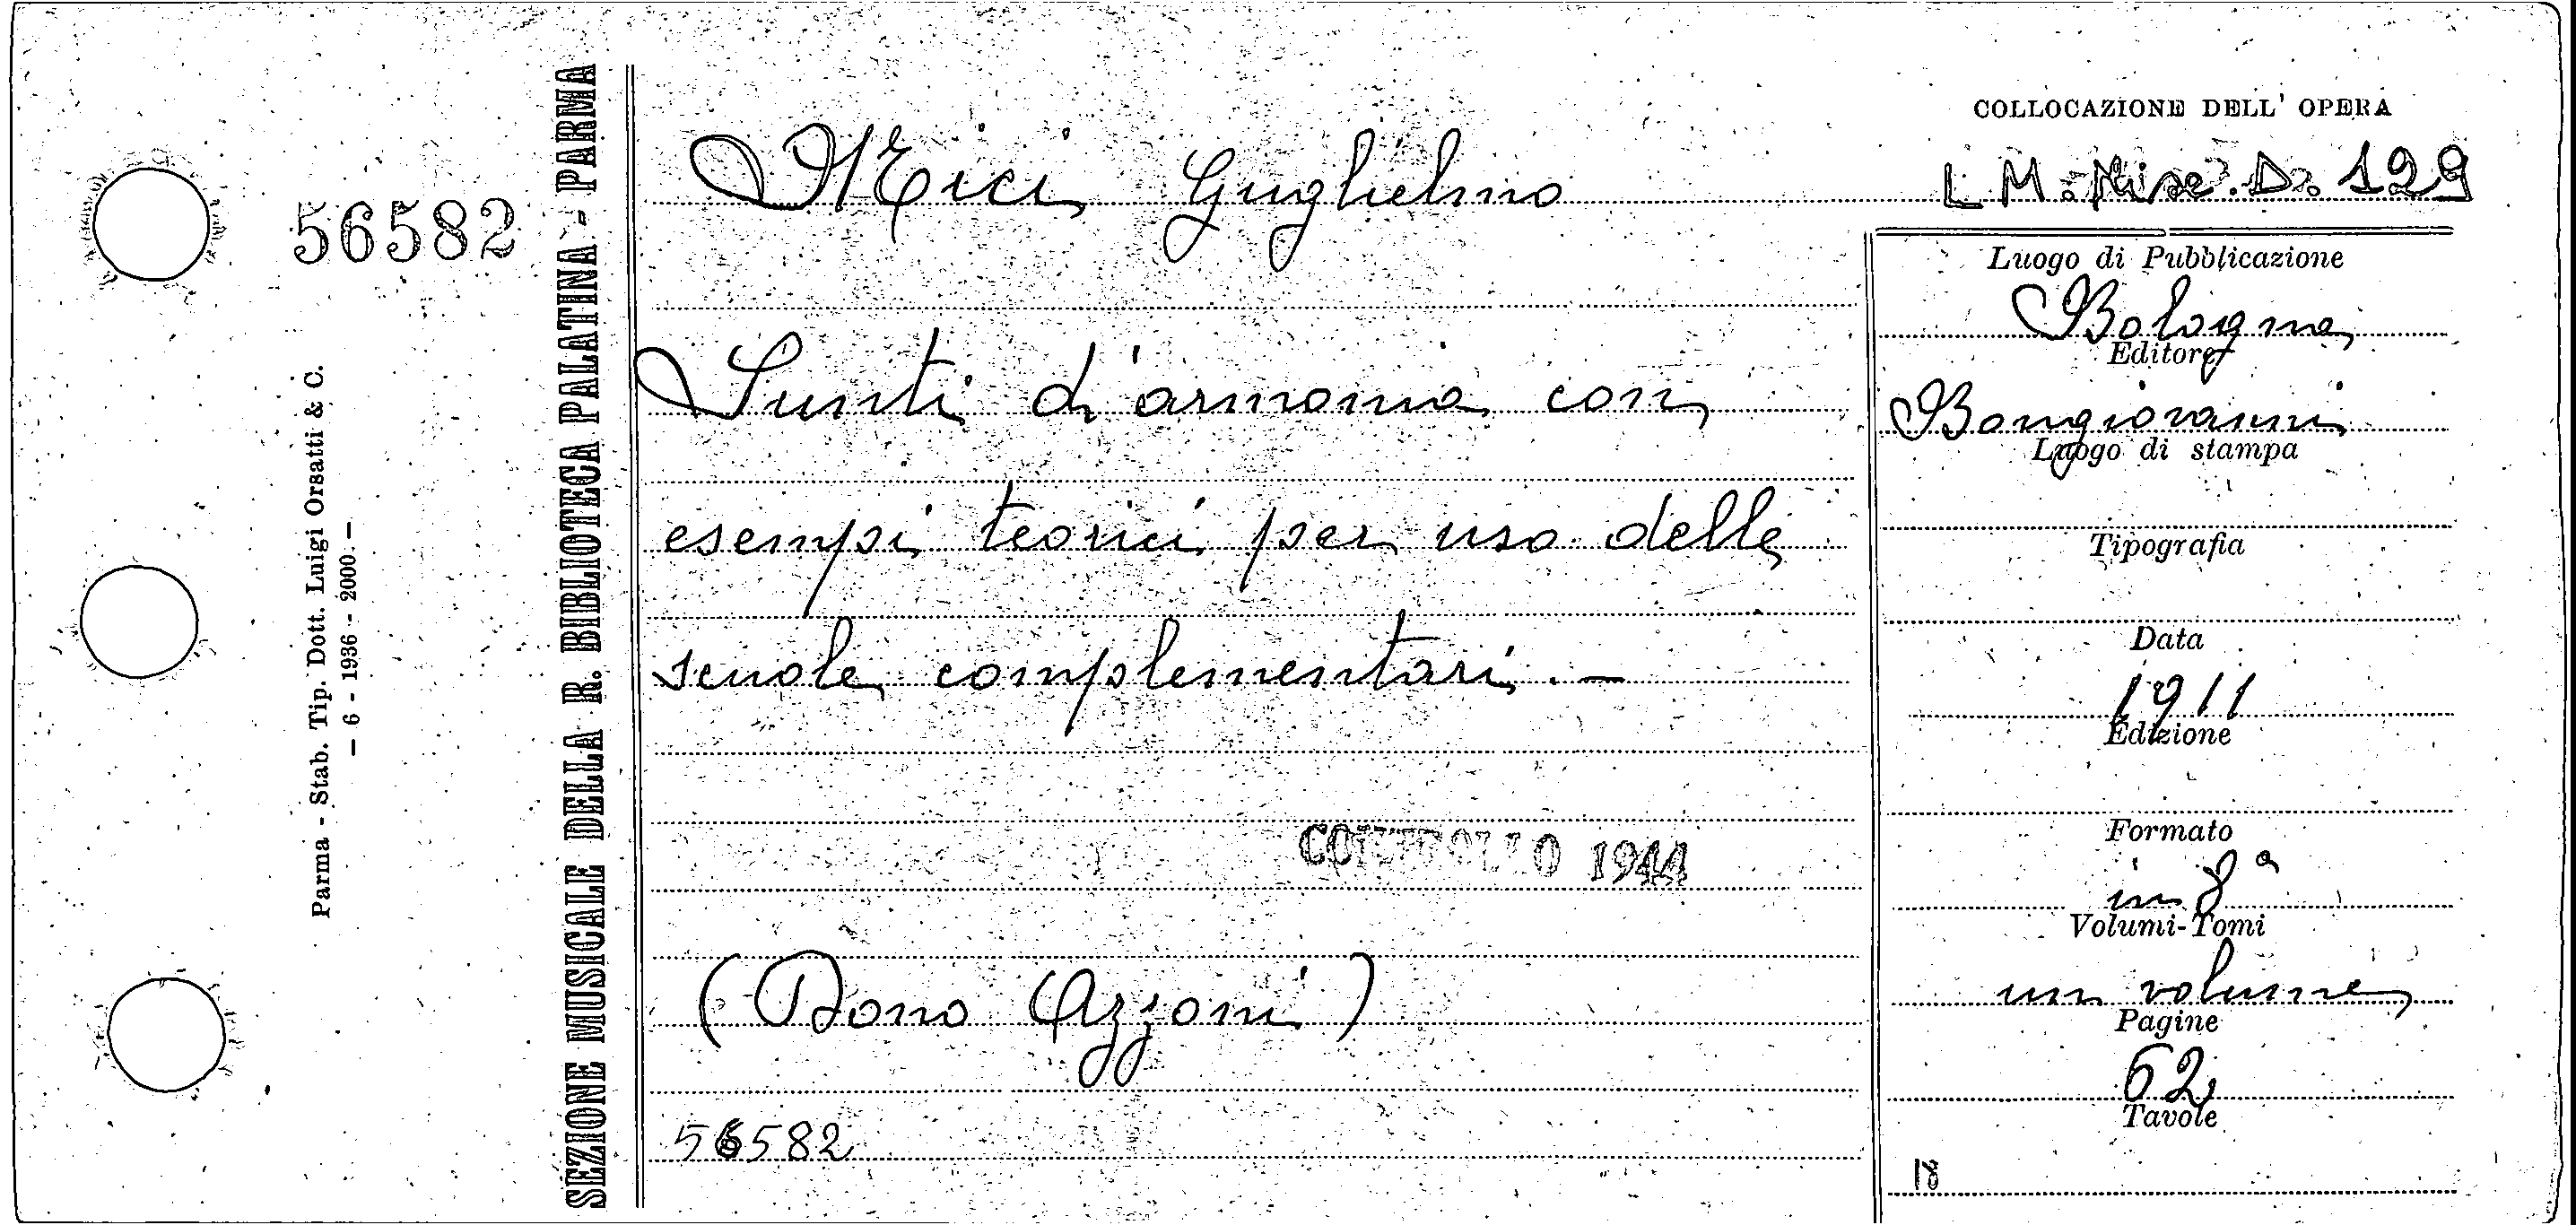 56582
Parma - Stab. Tip. Dott. Luigi Orsatti & C.
— 6 - 1936 - 2000. —
SEZIONE MUSICALE DELLA R. BIBLIOTECA PALATINA - PARMA
Guglielmo
Sunti d'armonia con
esempi teorici per uso delle
scuole complementari. —
CONTROLLO 1944
(Dono Azzoni)
56582
COLLOCAZIONE DELL' OPERA
L M. Misc. D. 129
Luogo di Pubblicazione
Bologna
Editore
Bongiovanni
Luogo di stampa
Tipografia
Data
1911
Edizione
Formato
in 8ª
Volumi-Tomi
un volume
Pagine
62
Tavole
18